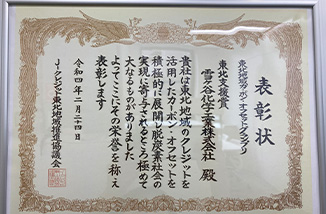 表彰状
東北地域カーボン・オフセットグランプリ
東北支援賞
雪ヶ谷化学工業株式会社 殿
貴社は東北地域のクレジットを
活用したカーボン・オフセットを
積極的に展開し脱炭素社会の
実現に寄与されるところ極めて
大なるものがありました
よってここにその栄誉を称え
表彰します
令和四年二月二十四日
J-クレジット東北地域推進協議会